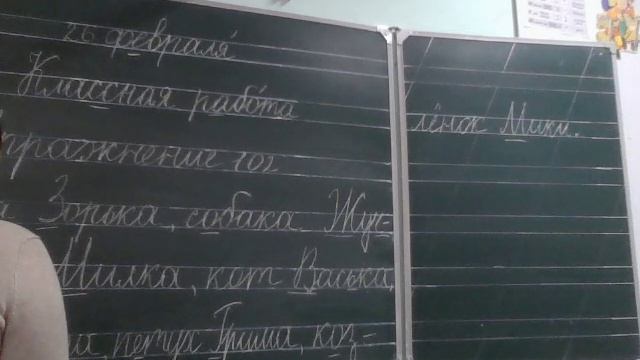 26 февраля
Классная работа
ражнение 102
Зорька, собака Жуч-
Милка, кот Васька,
петух Гриша, коз-
лёнок Мики.